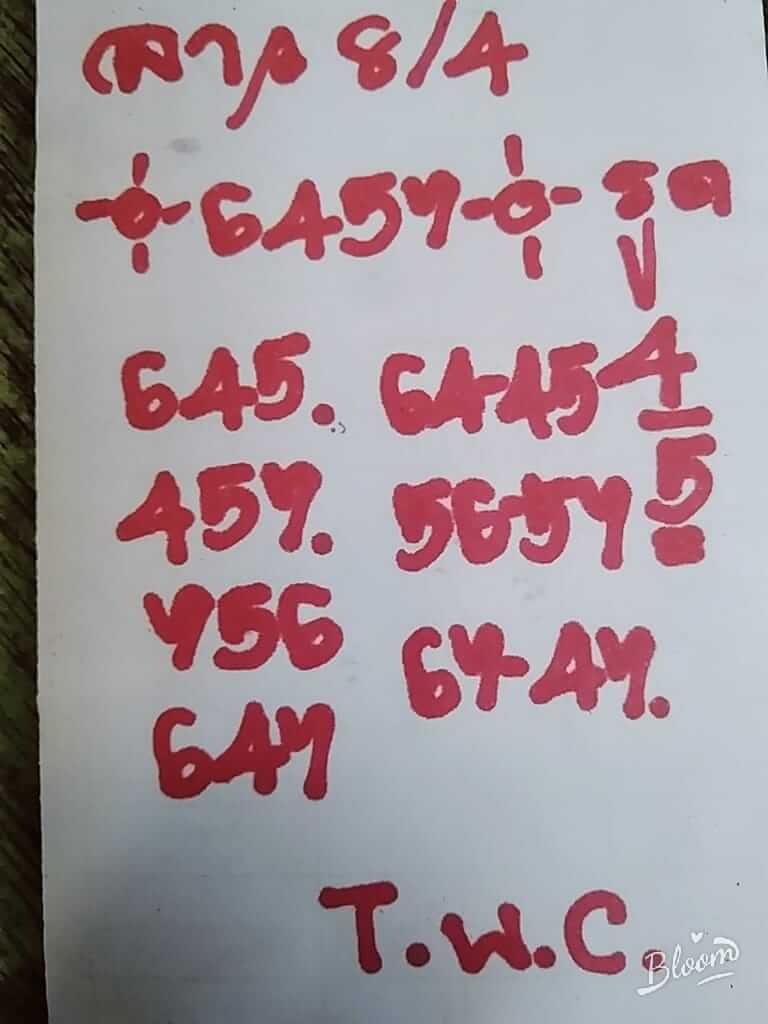 ลาว 8/4
6457 รูด
645. 64-45 4
457. 56-57 5
756
67-47.
647
T.W.C.
Bloom